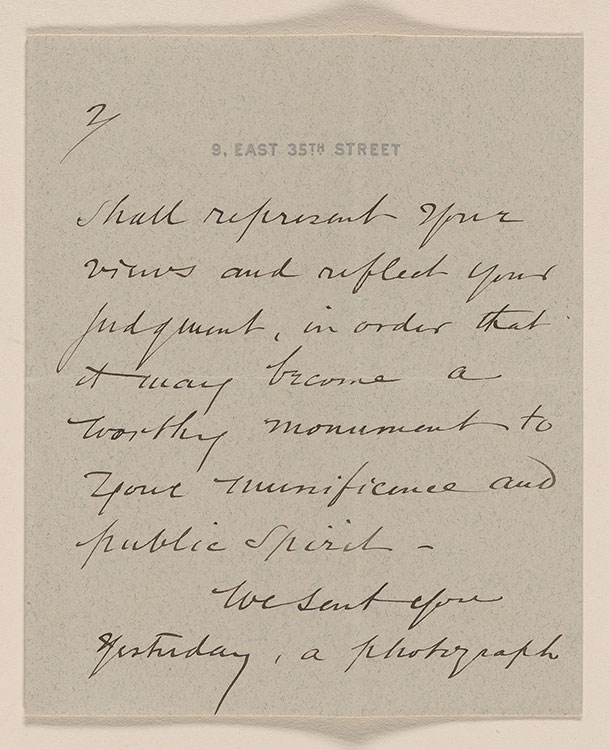 2/
9, EAST 35TH STREET
Shall represent your
views and reflect your
judgment, in order that
it may become a
worthy monument to
your munificence and
public spirit –
We sent you
yesterday, a photograph